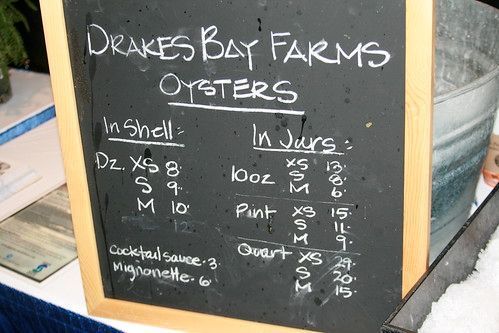 DRAKES BAY FARMS
OYSTERS
In Shell:
Dz. XS 8.
S 9.
M 10.
12.
cocktail sauce. 3.
mignonette. 6.
In Jars:
10oz XS 13.
S 8.
M 6.
Pint XS 15.
S 11.
M 9.
Quart XS 29.
S 20.
M 15.